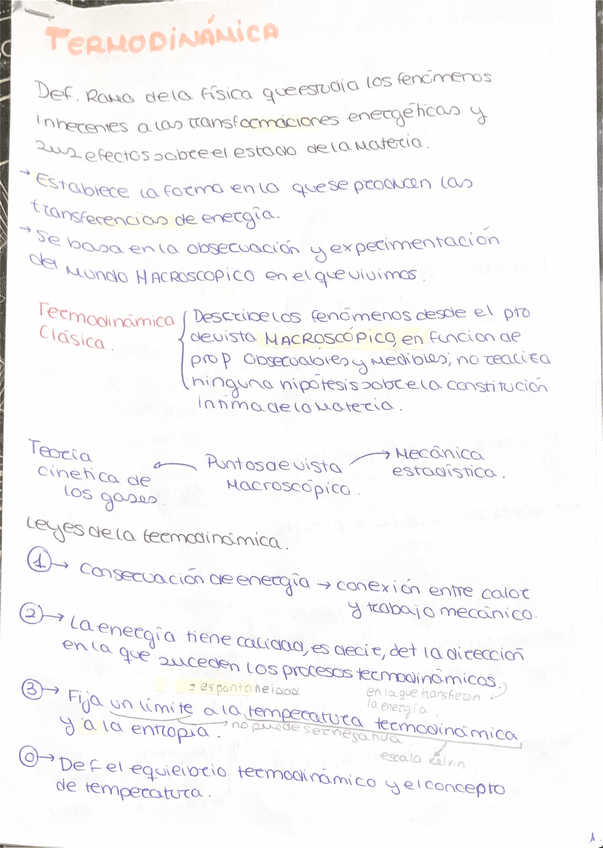 TERMODINÁMICA
Def. Rama de la física que estudia los fenómenos
inherentes a las transformaciones energéticas y
sus efectos sobre el estado de la materia.
→ Establece la forma en la que se producen las
transferencias de energía.
→ Se basa en la observación y experimentación
del MUNDO MACROSCOPICO en el que vivimos.
Termodinámica
Clásica.
Describe los fenómenos desde el pto
de vista MACROSCÓPICO, en funcion de
prop observables y medibles; no realiza
ninguna hipótesis sobre la constitución
intima de la materia.
Teoría
cinetica de
los gases.
Puntos de vista
Macroscópico.
Mecánica
estadística.
Leyes de la termodinámica.
① → Conservación de energía → conexión entre calor
y trabajo mecánico.
② → La energía tiene calidad, es decir, det la dirección
en la que suceden los procesos termodinámicos.
= espontaneidad
en la que transfieren
la energía.
③ → Fija un límite a la temperatura termodinámica
y a la entropía.
→ no puede ser negativa
escala Kelvin
⓪ → Def el equilibrio termodinámico y el concepto
de temperatura.
1.